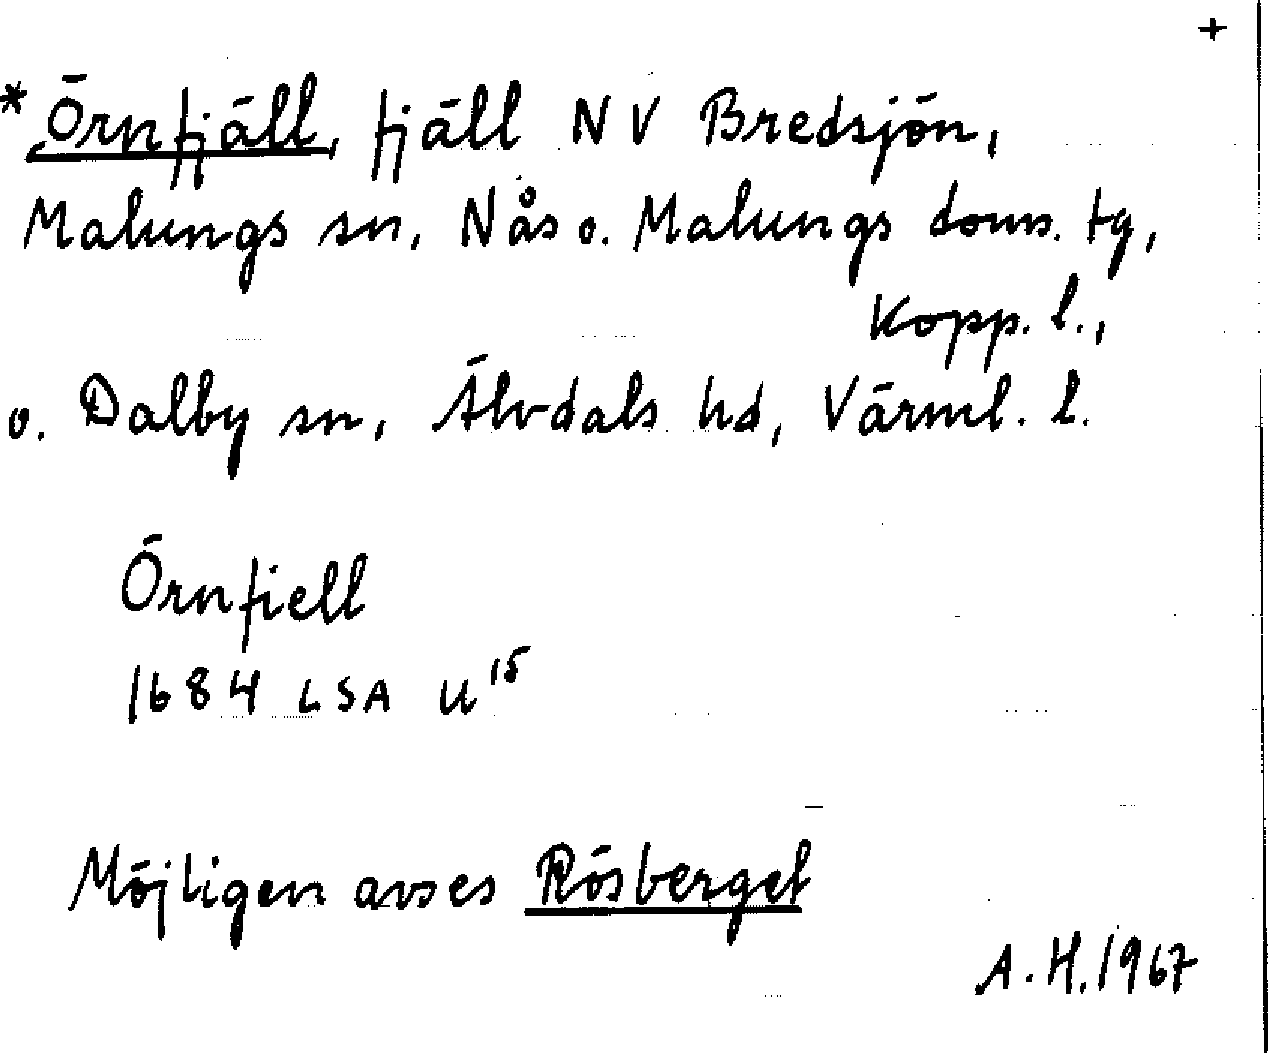 +
*Örnfjäll, fjäll NV Bredsjön,
Malungs sn, Nås o. Malungs doms. tg,
Kopp. l.,
o. Dalby sn, Älvdals hd, Värml. l.
Örnfiell
1684 LSA U¹⁵
Möjligen avses Rösberget
A.H. 1967